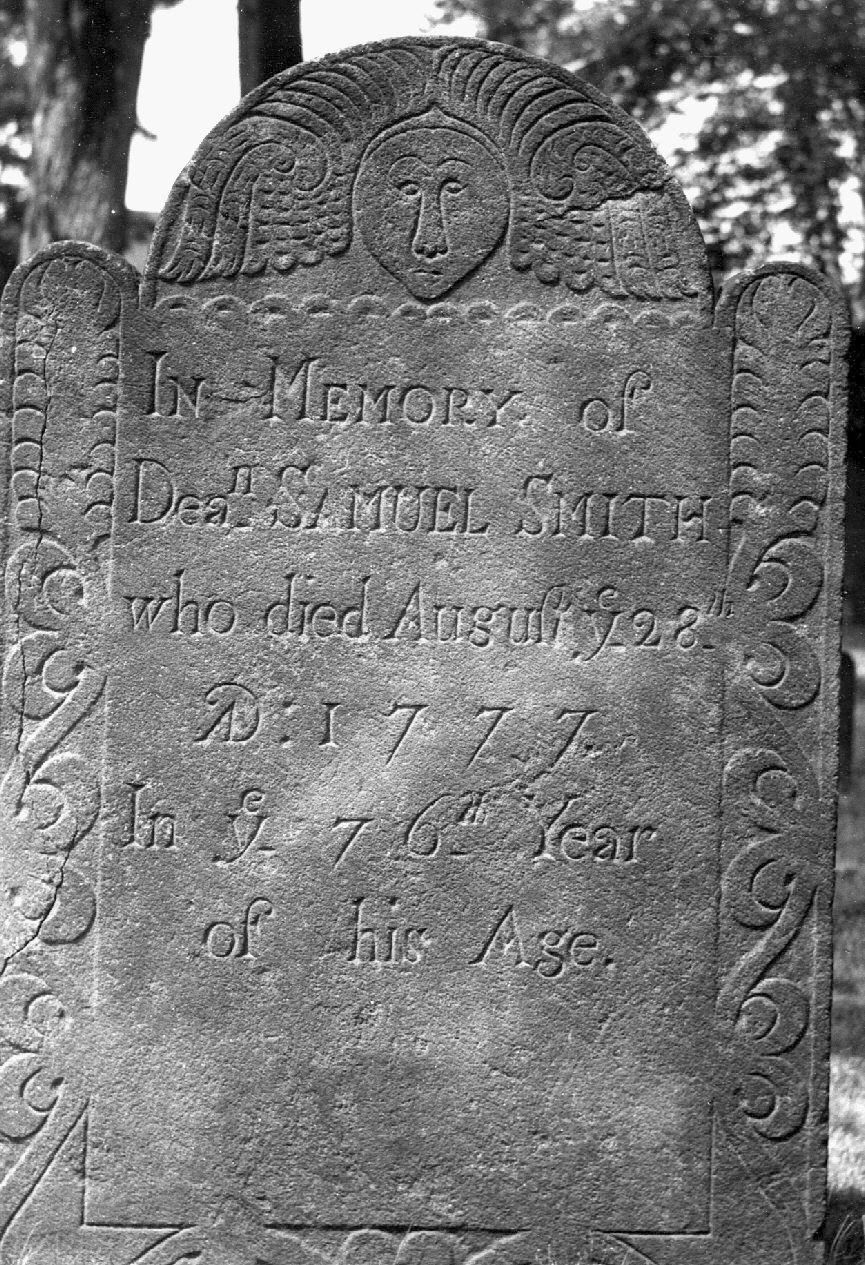 In MEMORY. of
Deaⁿ. SAMUEL SMITH
who died Auguſt yᵉ 28ᵗʰ.
AD: 1777.
In yᵉ. 76ᵗʰ. Year
of his Age.